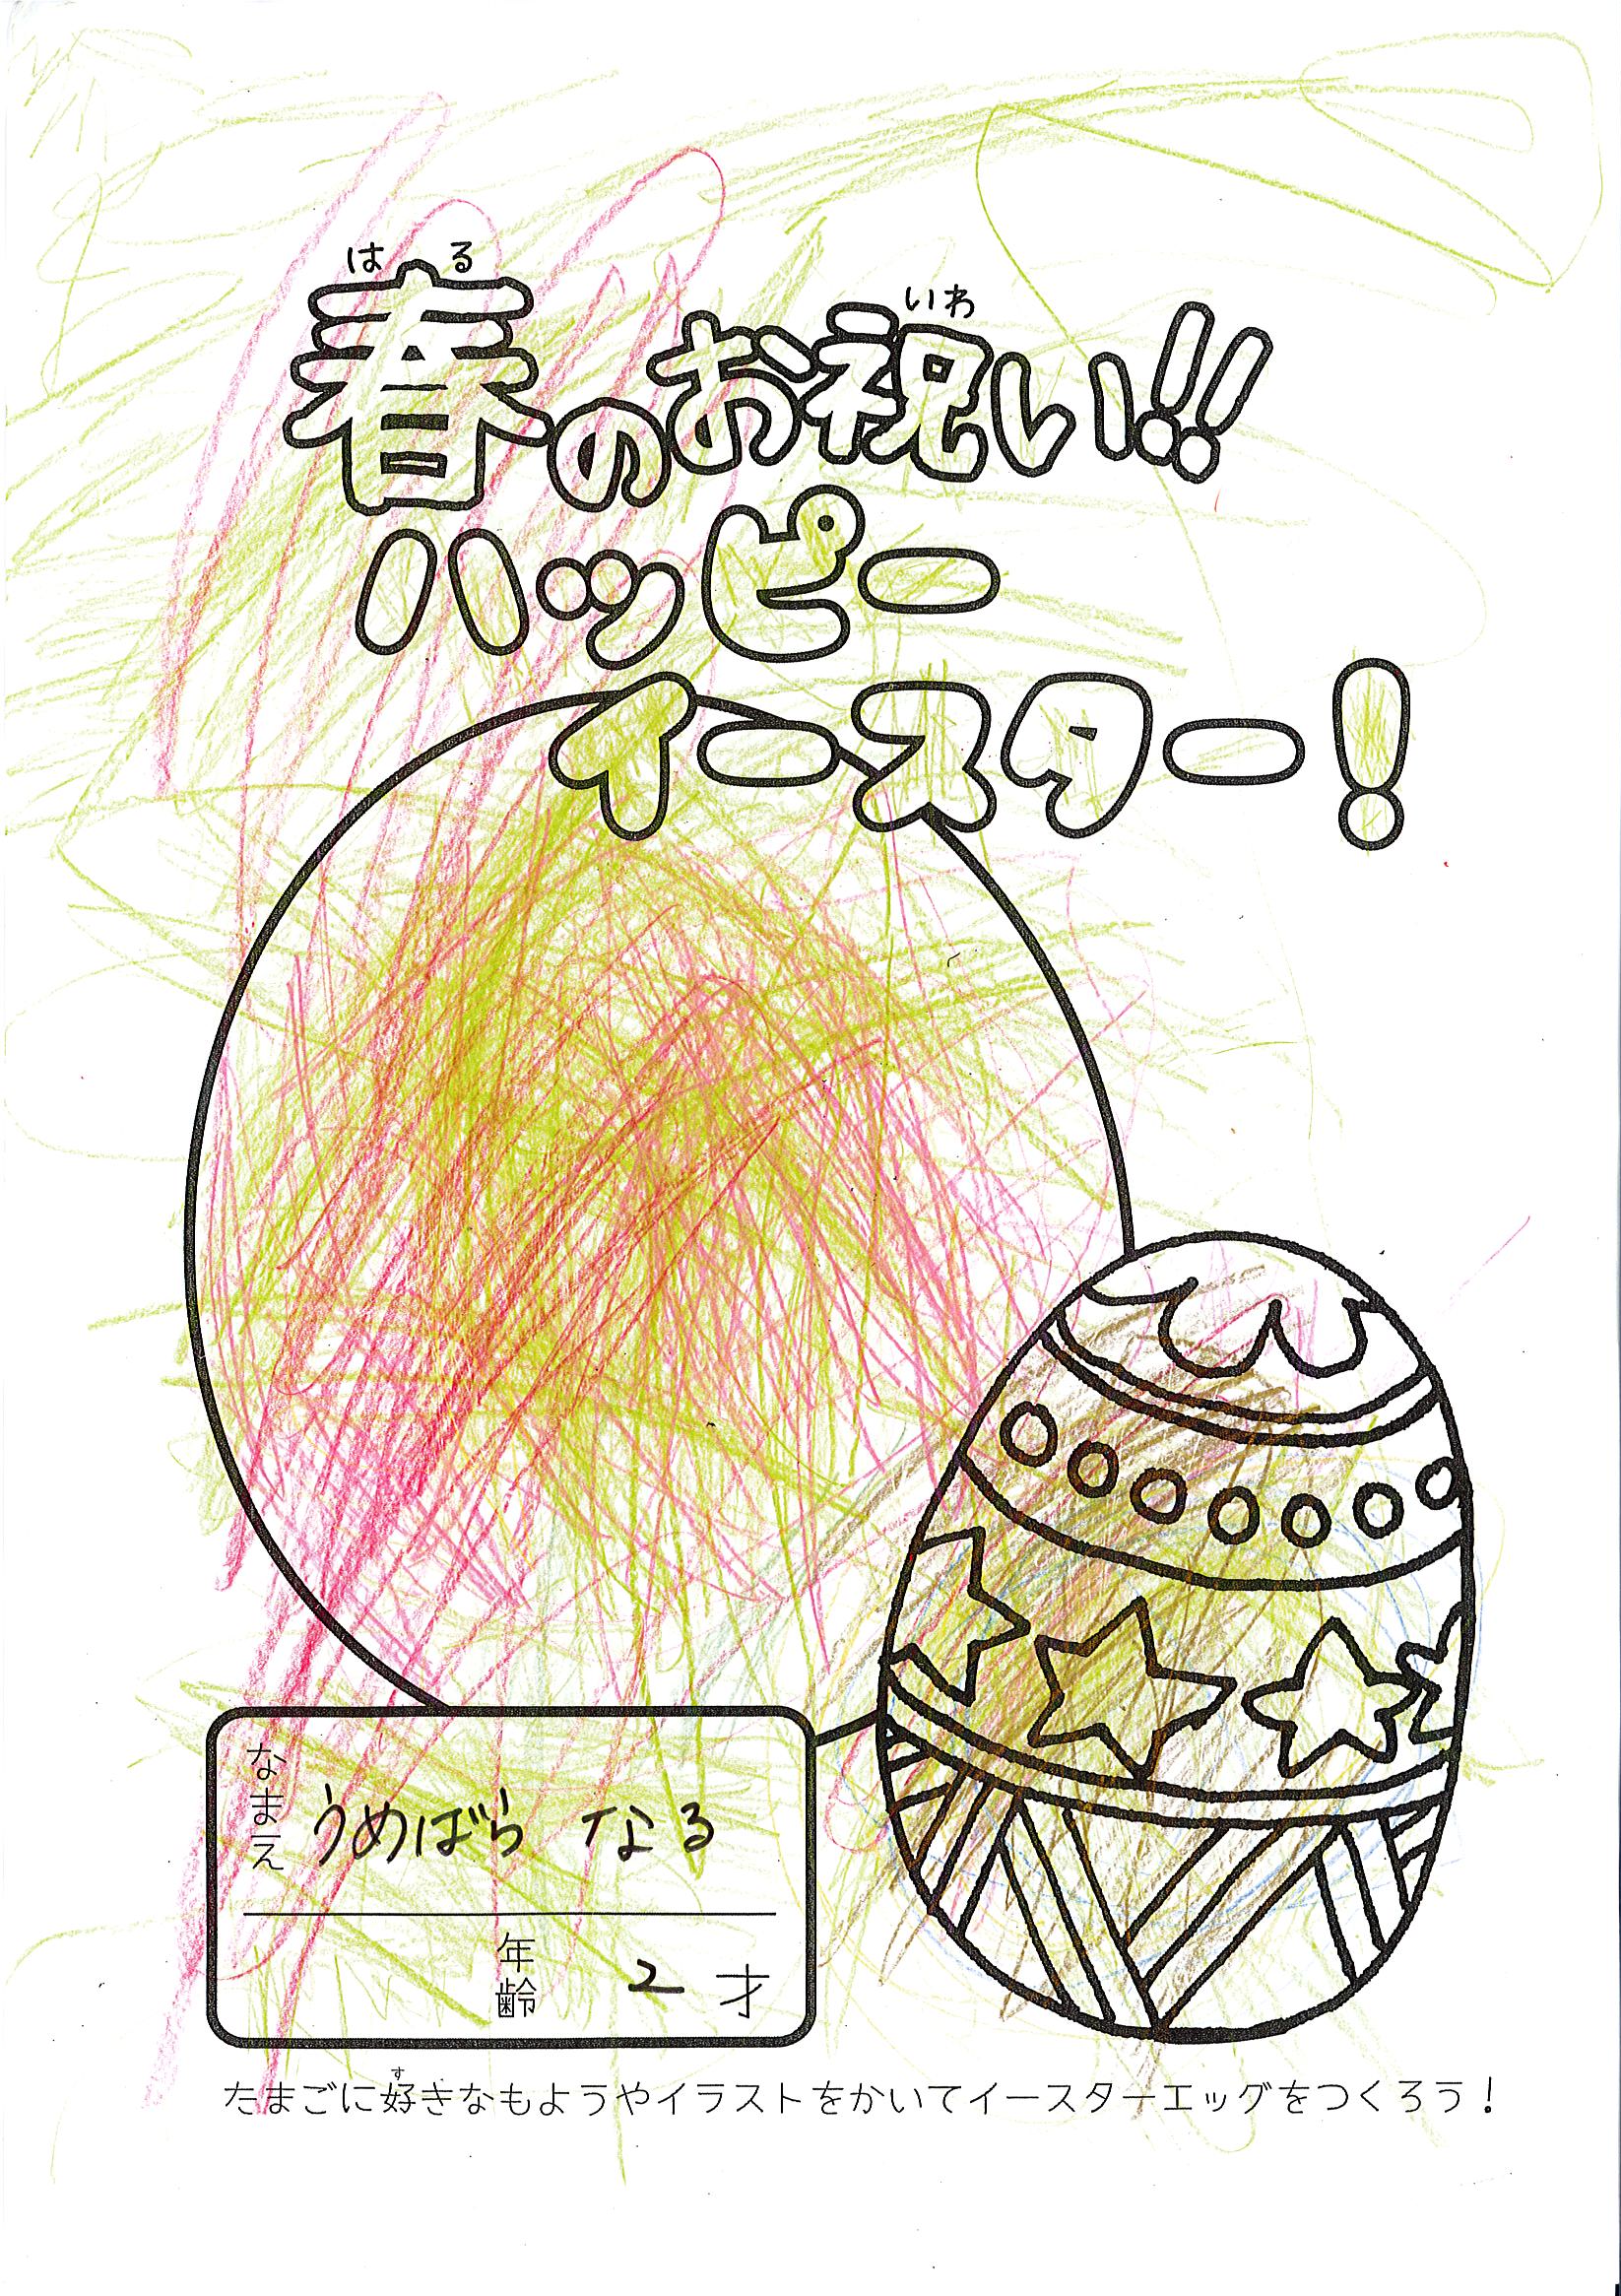 はる いわ
春のお祝い!!
ハッピー
イースター!
なまえ うめばら なる
年齢 2才
す
たまごに好きなもようやイラストをかいてイースターエッグをつくろう!